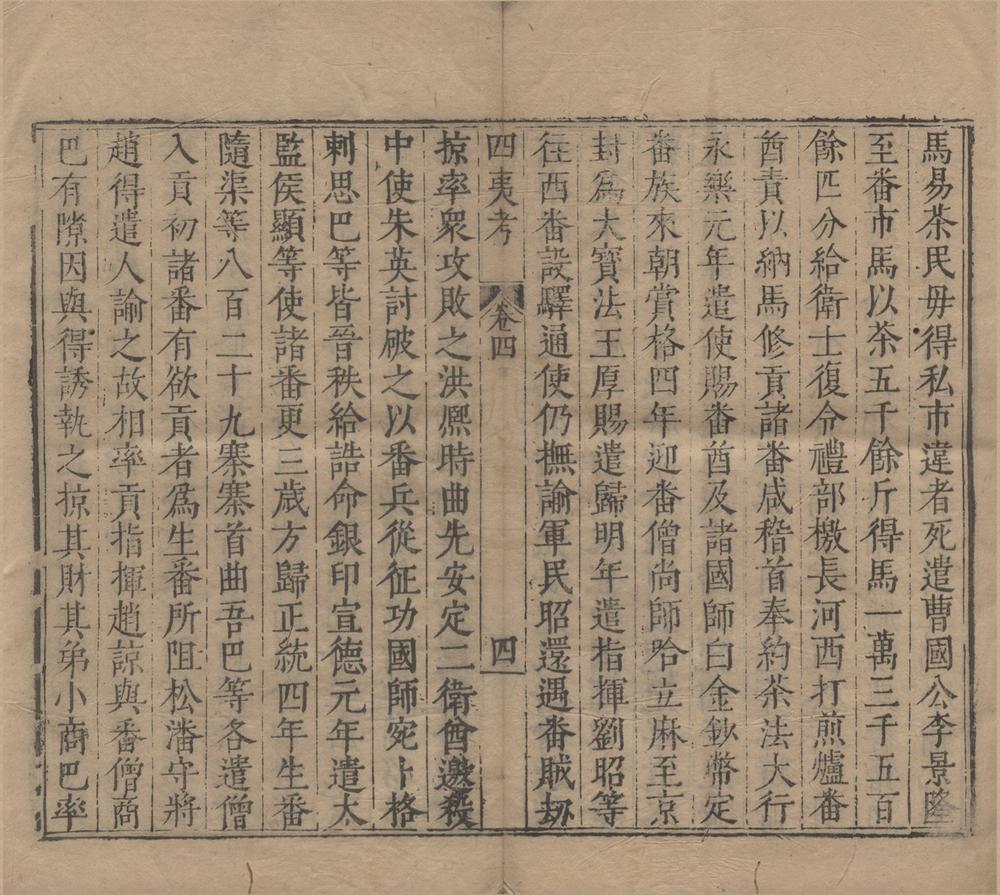 馬易茶民毋得私市違者死遣曹國公李景隆
至番市馬以茶五千餘斤得馬一萬三千五百
餘匹分給衛士復令禮部檄長河西打煎爐番
酋責以納馬修貢諸番咸稽首奉約茶法大行
永樂元年遣使賜番酋及諸國師白金鈔幣定
番族來朝賞格四年迎番僧尚師哈立麻至京
封爲大寶法王厚賜遣歸明年遣指揮劉昭等
徃西番設驛通使仍撫諭軍民昭還遇番賊刼
四夷考 卷四 四
掠率衆攻敗之洪熈時曲先安定二衛酋邀殺
中使朱英討破之以番兵從征功國師宛卜格
剌思巴等皆晉秩給誥命銀印宣德元年遣太
監侯顯等使諸番更三歲方歸正統四年生番
隨渠等八百二十九寨寨首曲吾巴等各遣僧
入貢初諸番有欲貢者爲生番所阻松潘守將
趙得遣人諭之故相率貢指揮趙諒與番僧商
巴有隙因與得誘執之掠其財其弟小商巴率